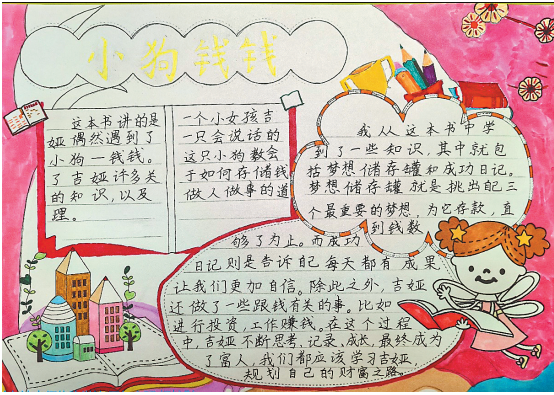 小狗钱钱
这本书讲的是 一个小女孩吉
娅偶然遇到了 一只会说话的
小狗一钱钱。 这只小狗教会
了吉娅许多关 于如何存储钱
的知识,以及 做人做事的道
理。
我从这本书中学
到了一些知识,其中就包
括梦想储存罐和成功日记。
梦想储存罐就是挑出自己三
个最重要的梦想,为它存款,直
到钱数
够了为止。而成功
日记则是告诉自己每天都有成果
让我们更加自信。除此之外,吉娅
还做了一些跟钱有关的事。比如
进行投资,工作赚钱。在这个过程
中,吉娅不断思考,记录,成长,最终成为
了富人,我们都应该学习吉娅,
规划自己的财富之路。